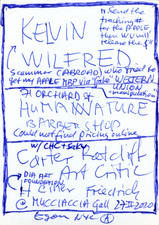 "Send the
tracking #
for the APPLE
then WU will
release the $"
KELVIN
WILFRED
Scammer (ABROAD) who tried to
get my APPLE MBP via "fake" WESTERN
UNION
71 ORCHARD of
HUMAN NATURE
BARBER SHOP
Could not find pricing online
w/ CHC + 
Carter Ratcliff
DIA ART
FOUNDATION
Art Critic
Friedrich
@ MUCCIACCIA Gall 27 II 2020
NYC